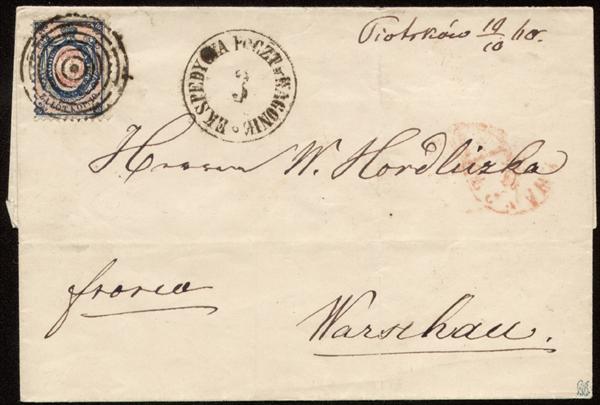 Piotrków 19/10 60.
EKSPEDYCYA POCZT. WAGONIK.
3
ZA ŁÓT KOP. 10
Herrn W. Hordliczka
franco
Warschau.